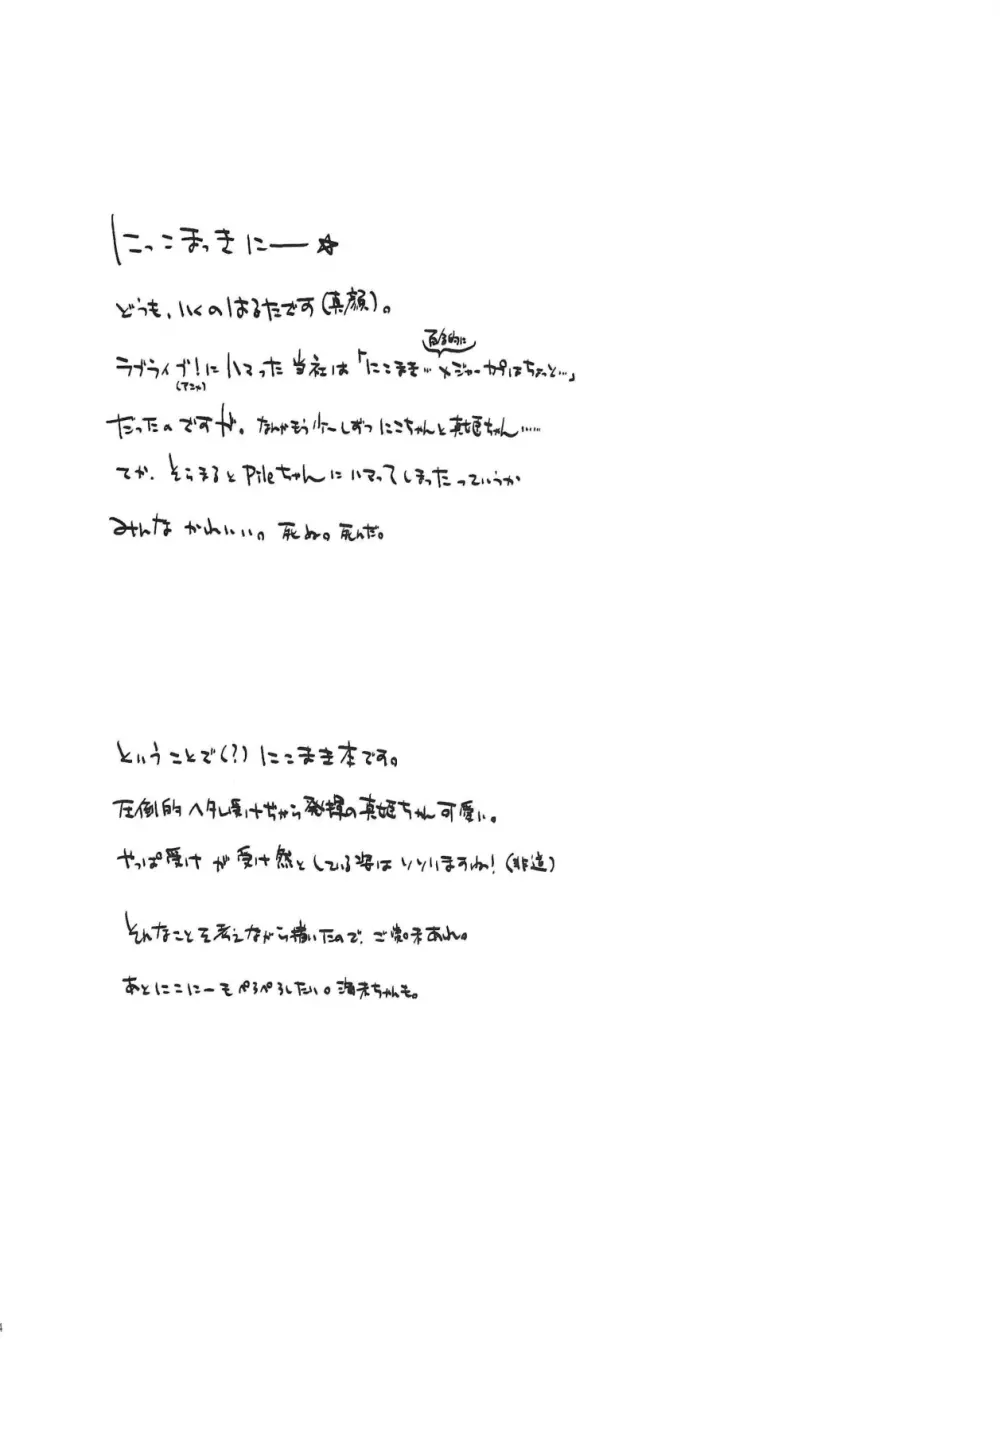 にっこまっきにー☆
どうも、いくのはるたです(真顔)。
百合的に
ラブライブ!にハマった当社は「にこまき…メジャーカプはちょっと…」
(アニメ)
だったのですが、なんかもう少ーしずつにこちゃんと真姫ちゃん……
てか、そらまるとPileちゃんにハマってしまったっていうか
みんなかわいい。死ぬ。死んだ。
ということで(?)にこまき本です。
圧倒的ヘタレ受けぢから発揮の真姫ちゃん可愛い。
やっぱ受けが受け然としている姿はいいいますね!(非道)
そんなことを考えながら描いたので、ご笑味あれ。
あとにこにーもぺろぺろしたい。海未ちゃんも。